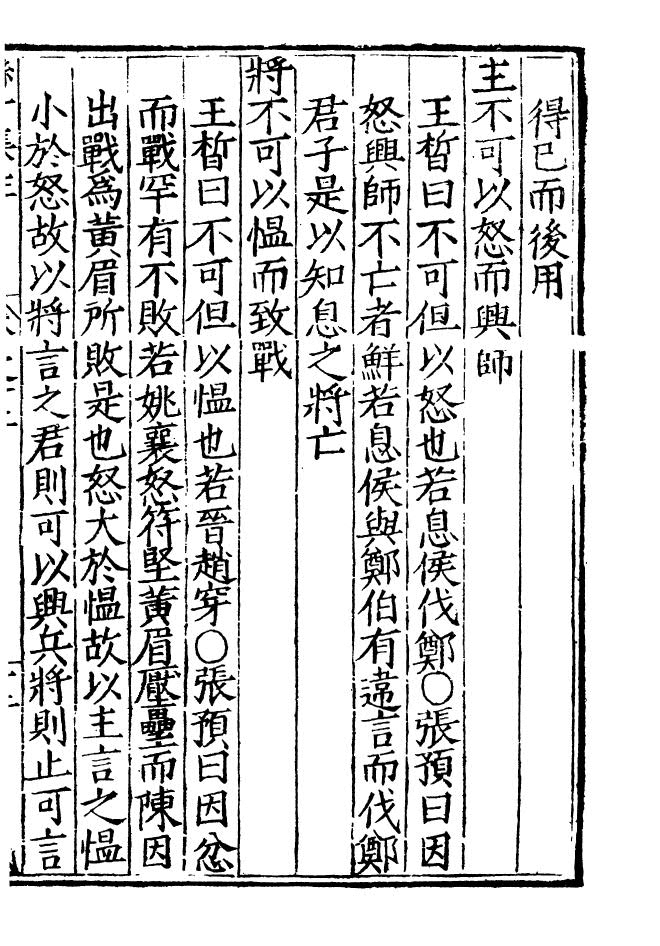 得已而後用
主不可以怒而興師
王晳曰不可但以怒也若息侯伐鄭○張預曰因
怒興師不亡者鮮若息侯與鄭伯有違言而伐鄭
君子是以知息之將亡
將不可以愠而致戰
王晳曰不可但以愠也若晉趙穿○張預曰因忿
而戰罕有不敗若姚襄怒符堅黄眉壓壘而陳因
出戰爲黄眉所敗是也怒大於愠故以主言之愠
小於怒故以將言之君則可以興兵將則止可言